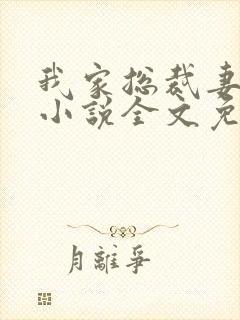 我家总裁妻
小说全文免
月離爭